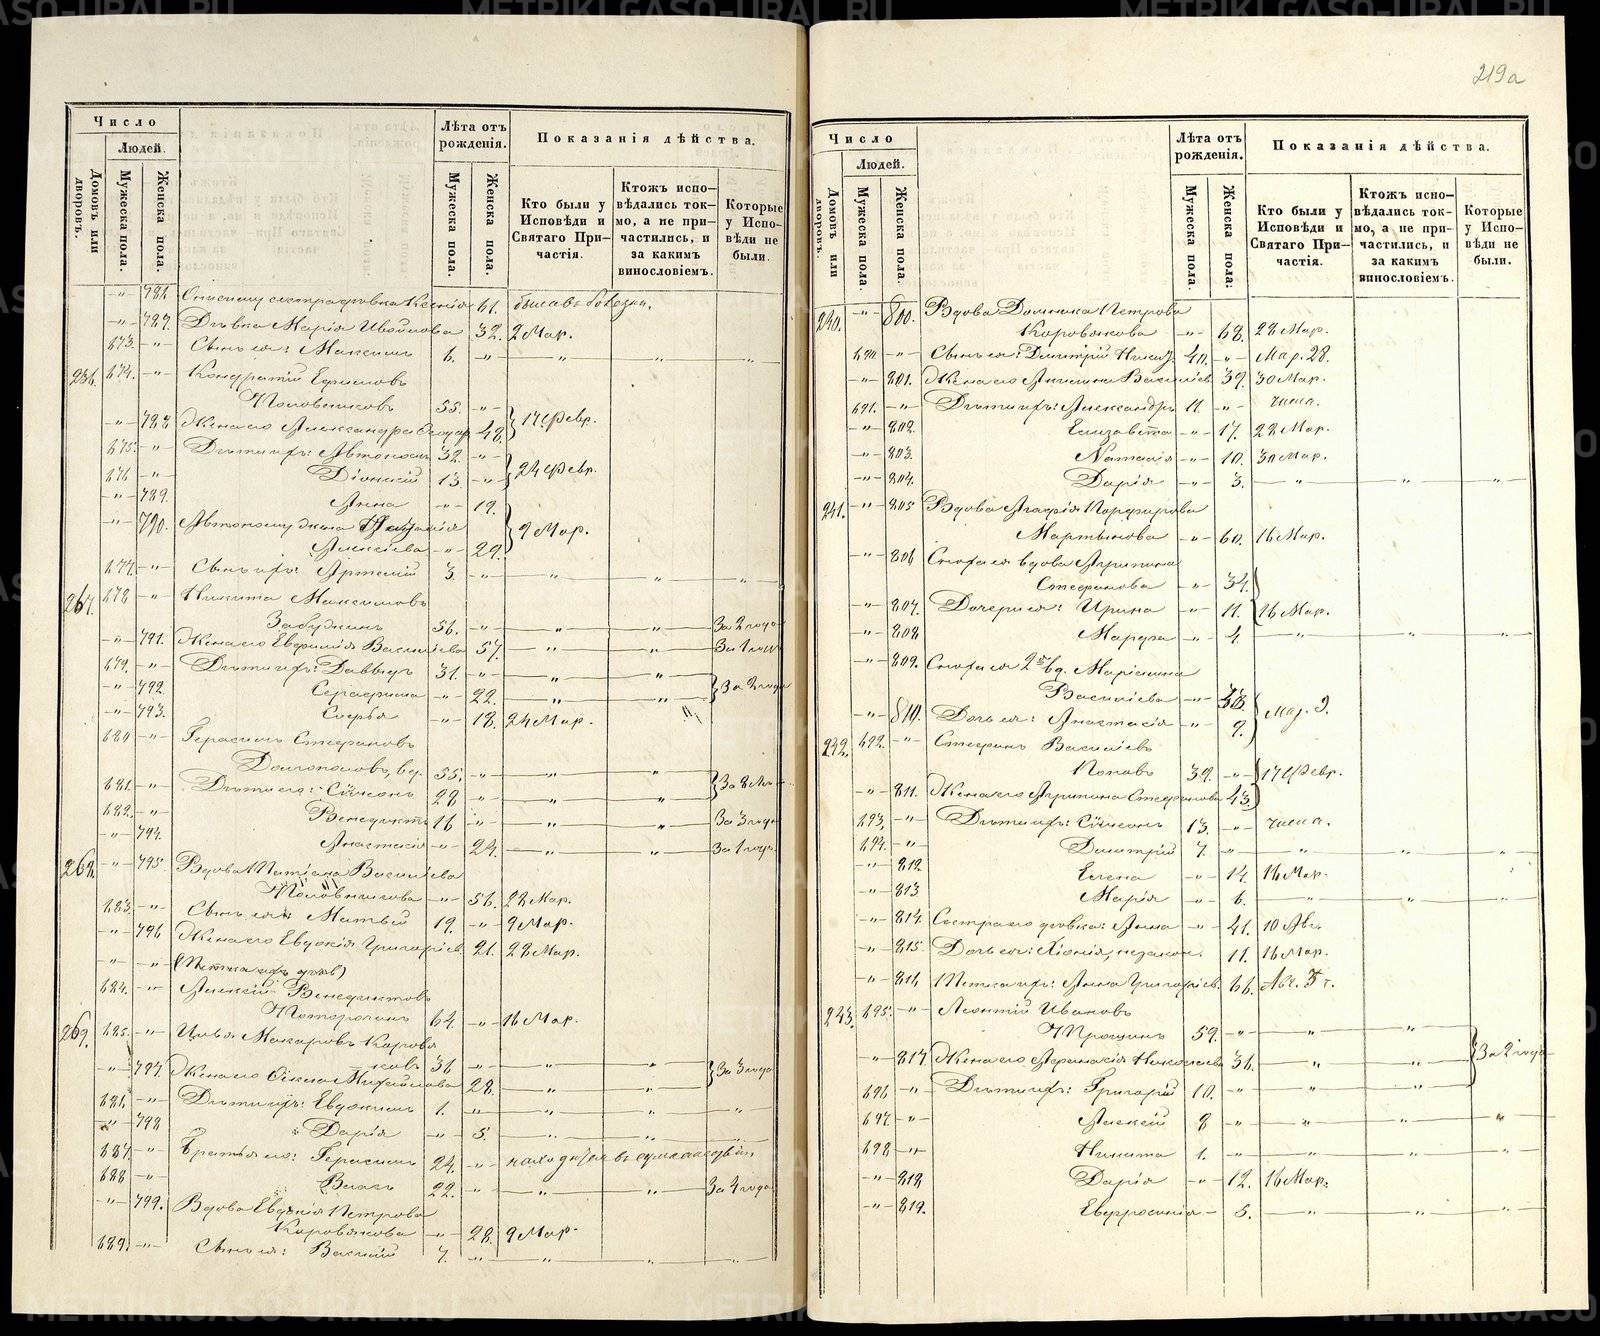 METRIKI.GASO-URAL.RU
219а
Число
Людей.
Домовъ или дворовъ.
Мужеска пола.
Женска пола.
Лѣта отъ рожденія.
Мужеска пола.
Женска пола.
Показанія дѣйства.
Кто были у Исповѣди и Святаго Причастія.
Ктожъ исповѣдались токмо, а не причастились, и за какимъ винословіемъ.
Которые у Исповѣди не были.
61.
-"- 787. Дѣвка Марія 32. 2 Мар.
673. -"- Сынъ ея: Максимъ 6. -"- " " "
236. 674. -"- Кондратій Ефимовъ
Половниковъ 55. -"-
-"- 788 Жена его Александра 48. 17 Февр.
675. -"- Дѣти ихъ: Автономъ 32. -"-
676 -"- Діонисій 13. -"- 24 Февр.
-"- 789. Анна -"- 19.
-"- 790. Автоному жена
Алексіева -"- 29. 9 Мар.
677. -"- Сынъ ихъ: Артемій 3. -"- " " "
267. 678 -"- Никита Максимовъ
56. -"- " " За 2 года
-"- 791. Жена его Евфимія Василіева 57. " " За 1 годъ
679. -"- Дѣти ихъ: Давыдъ 31. -"- " "
-"- 792. Серафима -"- 22. " " За 2 года
-"- 793. Софья -"- 18. 24 Мар.
680 -"- Герасимъ Стефановъ
Долгополовъ, вд. 55. -"- " "
681. -"- Дѣти его: Сѵмеонъ 28 -"- " "
682. -"- Венедиктъ 16 -"- " " За 3 года
-"- 794. Анастасія -"- 24. " " За 1 годъ
268. -"- 795 Вдова Татіана Василіева
Половникова -"- 56. 22 Мар.
683. -"- Сынъ ея: Матвей 19. -"- 9 Мар.
-"- 796 Жена его Евдокія Григоріев. 21. 22 Мар.
-"- -"- (Тетка ихъ
684. -"- Алексій Венедиктовъ
64. -"- 16 Мар.
269. 685. -"- Илья Макаровъ Коровя
ковъ 36 -"- " "
-"- 797. Жена его Ѳекла Михайлова 28. " " За 3 года
686. -"- Дѣти ихъ: Евдокимъ 1. -"- " " "
-"- 798 Дарія -"- 5. " "
687. -"- Братья его: Герасимъ 24. -"- находятся въ
688 -"- Власъ 22. -"- " " За 4 года
-"- 799. Вдова Евдокія Петрова
Коровякова -"- 28. 9 Мар.
689. -"- Сынъ ея: Василій 7. -"- " " "
Число
Людей.
Домовъ или дворовъ.
Мужеска пола.
Женска пола.
Лѣта отъ рожденія.
Мужеска пола.
Женска пола.
Показанія дѣйства.
Кто были у Исповѣди и Святаго Причастія.
Ктожъ исповѣдались токмо, а не причастились, и за какимъ винословіемъ.
Которые у Исповѣди не были.
240. -"- 800. Вдова Домника Петрова
Коровякова -"- 68. 22 Мар.
690. -"- Сынъ ея: Димитрій 40. -"- Мар. 28.
-"- 801. Жена его Акилина Василіев. 39. 30 Мар.
691. -"- Дѣти ихъ: Александръ 11. -"- числа.
-"- 802. Елизавета -"- 17. 22 Мар.
-"- 803. Наталія -"- 10. 30 Мар.
-"- 804. Дарія -"- 3. " " "
241. -"- 805 Вдова Агафія Порфирова
Мартынова -"- 60. 16 Мар.
-"- 806 Сноха ея вдова Агрипина
Стефанова -"- 34.
-"- 807. Дочери ея: Ирина -"- 11. 16 Мар.
-"- 808 Марфа -"- 4. " " "
-"- 809. Сноха ея 2я вд. Маріанна
Василіева -"- 38
-"- 810. Дочь ея: Анастасія -"- 9. Мар. 9.
242. 692. -"- Стефанъ Василіевъ
Поповъ 39. -"- 17 Февр.
-"- 811. Жена его Агрипина Стефанова 43.
693, -"- Дѣти ихъ: Сѵмеонъ 13. -"- числа.
694. -"- Димитрій 7. -"- " " "
-"- 812 Елена -"- 14. 16 Мар.
-"- 813 Марія -"- 6. " " "
-"- 814 Сестра его дѣвка: Анна -"- 41. 10 Апр.
-"- 815 Дочь ея: Хіонія, незакон. 11. 16 Мар.
-"- 816 Тетка ихъ: Анна Григоріев. 66.
243. 695. -"- Леонтій Ивановъ
59. -"- " "
-"- 817 Жена его Афанасія Николаева 36. " " За 2 года
696 -"- Дѣти ихъ: Григорій 10. -"- " "
697. -"- Алексій 8 -"- " " "
698 -"- Никита 1. -"- " " "
-"- 818 Дарія -"- 12. 16 Мар.
-"- 819. Евфросинія -"- 5. " " "